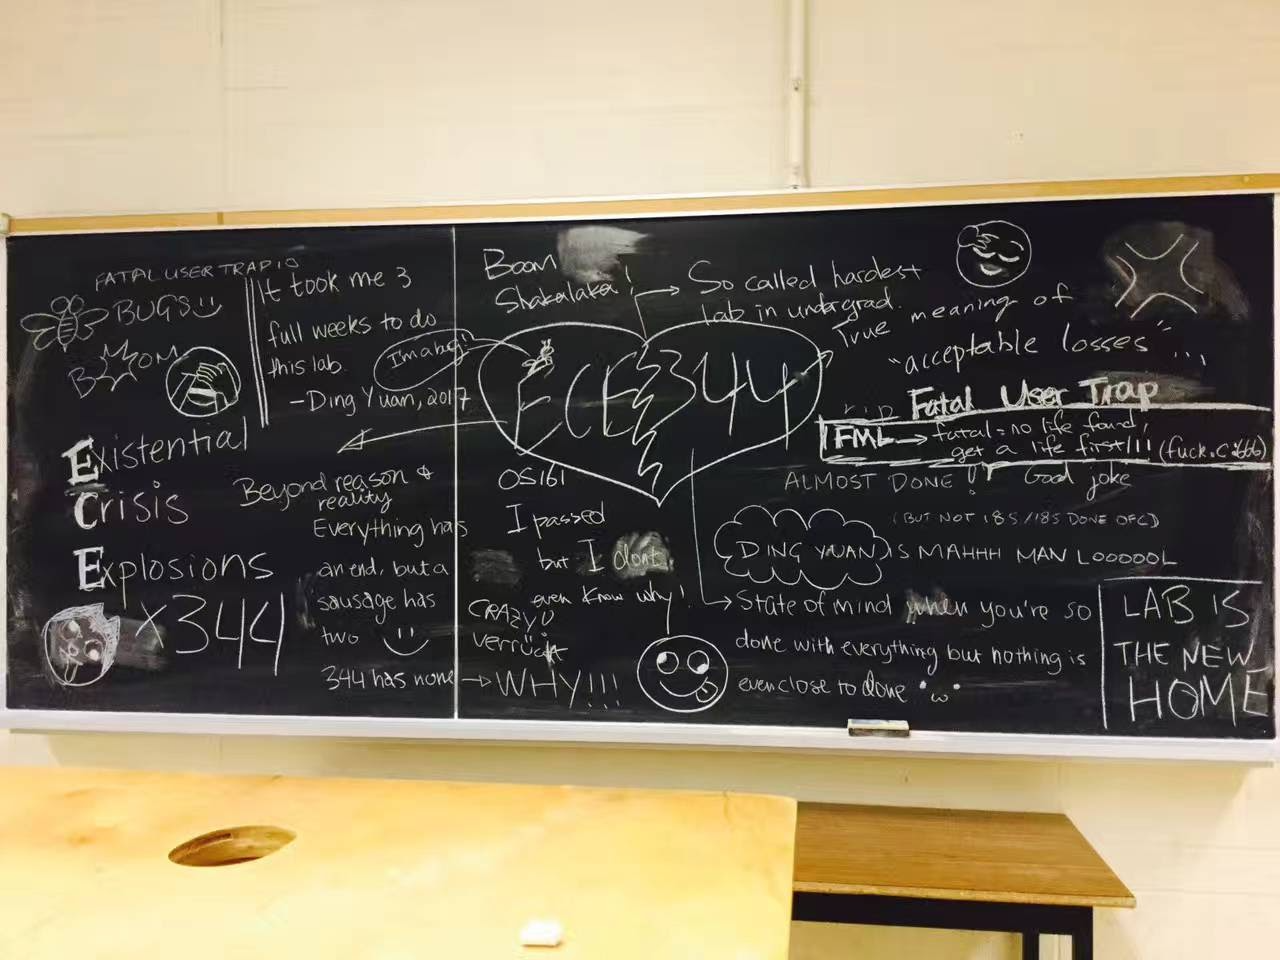 FATAL USER TRAP 10
BUGS
BOOM
It took me 3
full weeks to do
this lab.
-Ding Yuan, 2017
I'm a bug!
Existential
Crisis
Explosions
x344
Beyond reason &
reality
Everything has
an end, but a
sausage has
two
344 has none → WHY!!!
Boom
Shakalaka!
ECE344
OS161
I passed
but I dont
even know why!
CRAZY!
verrückt
→ So called hardest
lab in undergrad.
True meaning of
"acceptable losses"...
rip Fatal User Trap
FML → fatal = no life found,
get a life first!!!
ALMOST DONE! Good joke
(BUT NOT 185/185 DONE OFC)
DING YUAN IS MAHHH MAN LOOOOOL
→ State of mind when you're so
done with everything but nothing is
even close to done "ω"
LAB IS
THE NEW
HOME